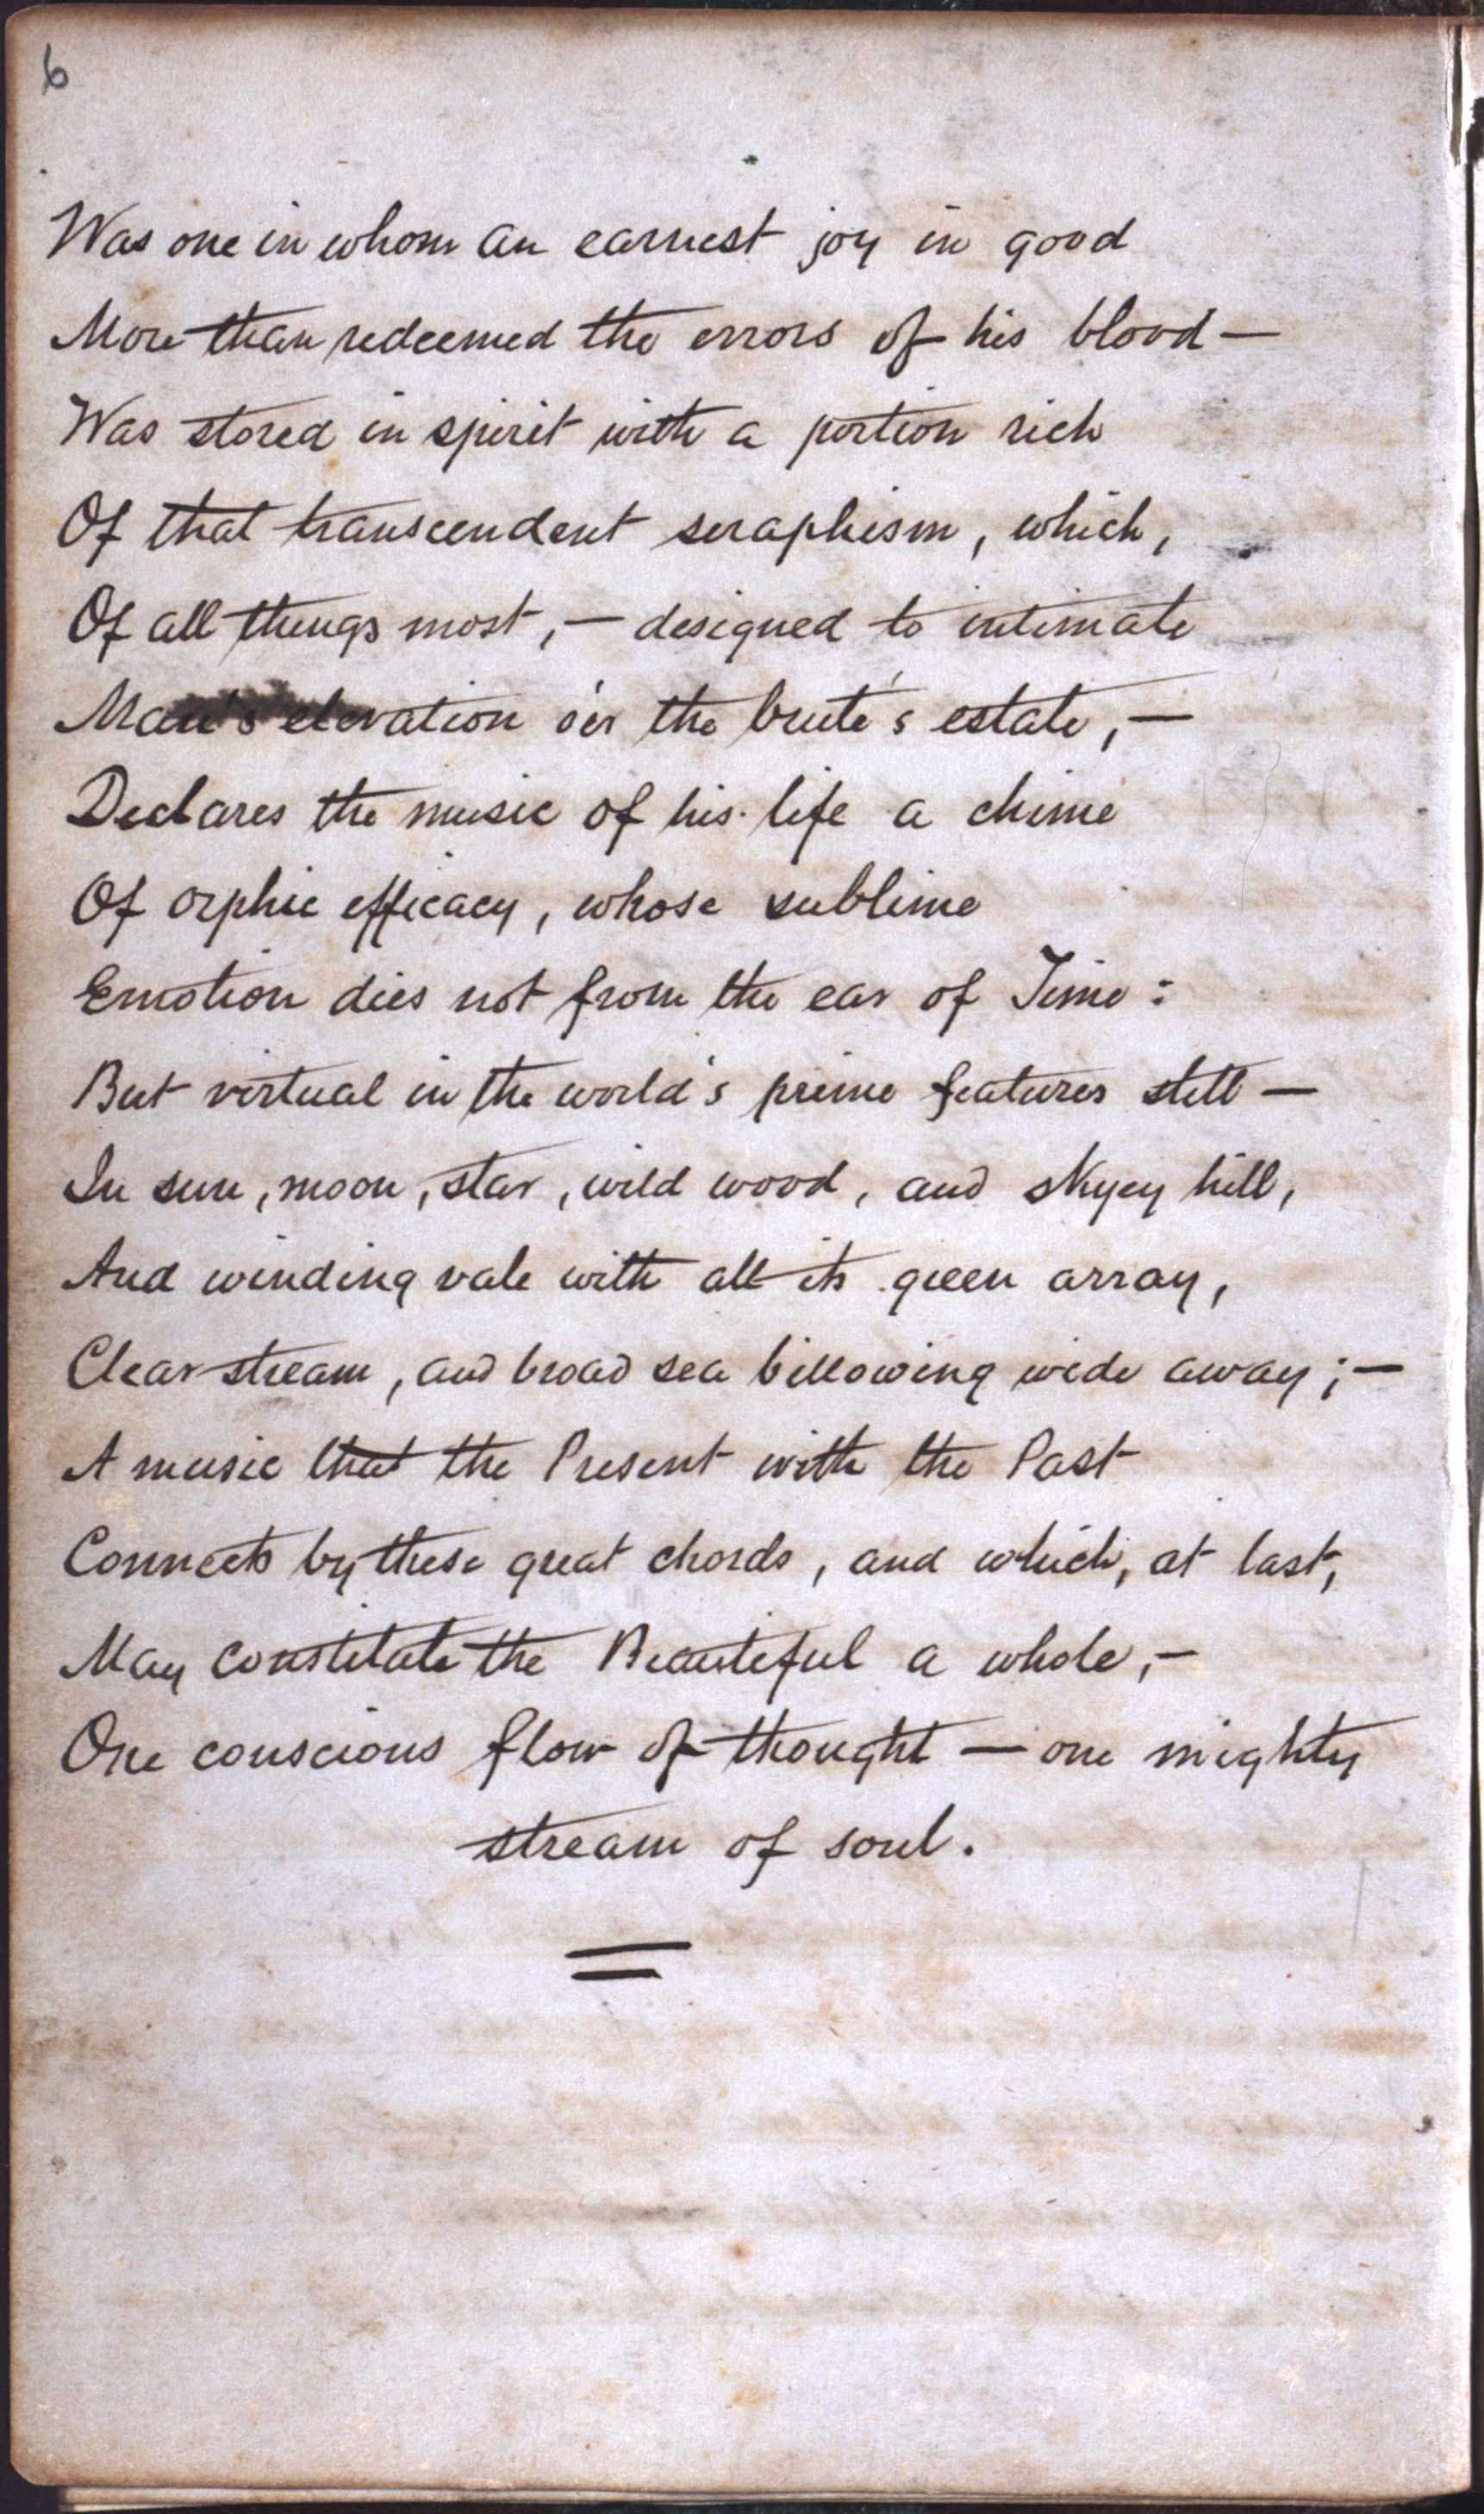 6
Was one in whom an earnest joy in good
More than redeemed the errors of his blood —
Was stored in spirit with a portion rich
Of that transcendent seraphism, which,
Of all things most, — designed to intimate
Man's elevation o'er the brute's estate, —
Declares the music of his life a chime
Of orphic efficacy, whose sublime
Emotion dies not from the ear of Time:
But virtual in the world's prime features still —
In sun, moon, star, wild wood, and skyey hill,
And winding vale with all its green array,
Clear stream, and broad sea billowing wide away; —
A music that the Present with the Past
Connects by these great chords, and which, at last,
May constitute the Beautiful a whole, —
One conscious flow of thought — one mighty
stream of soul.